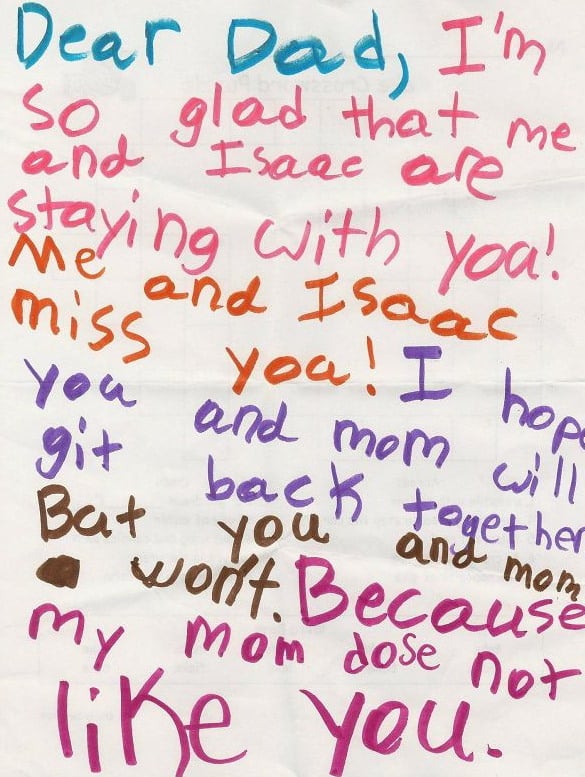 Dear Dad, I'm
so glad that me
and Isaac are
staying with yoa!
Me and Isaac
miss yoa! I hope
you and mom will
git back together
Bat you and mom
won't. Because
my mom dose not
like you.